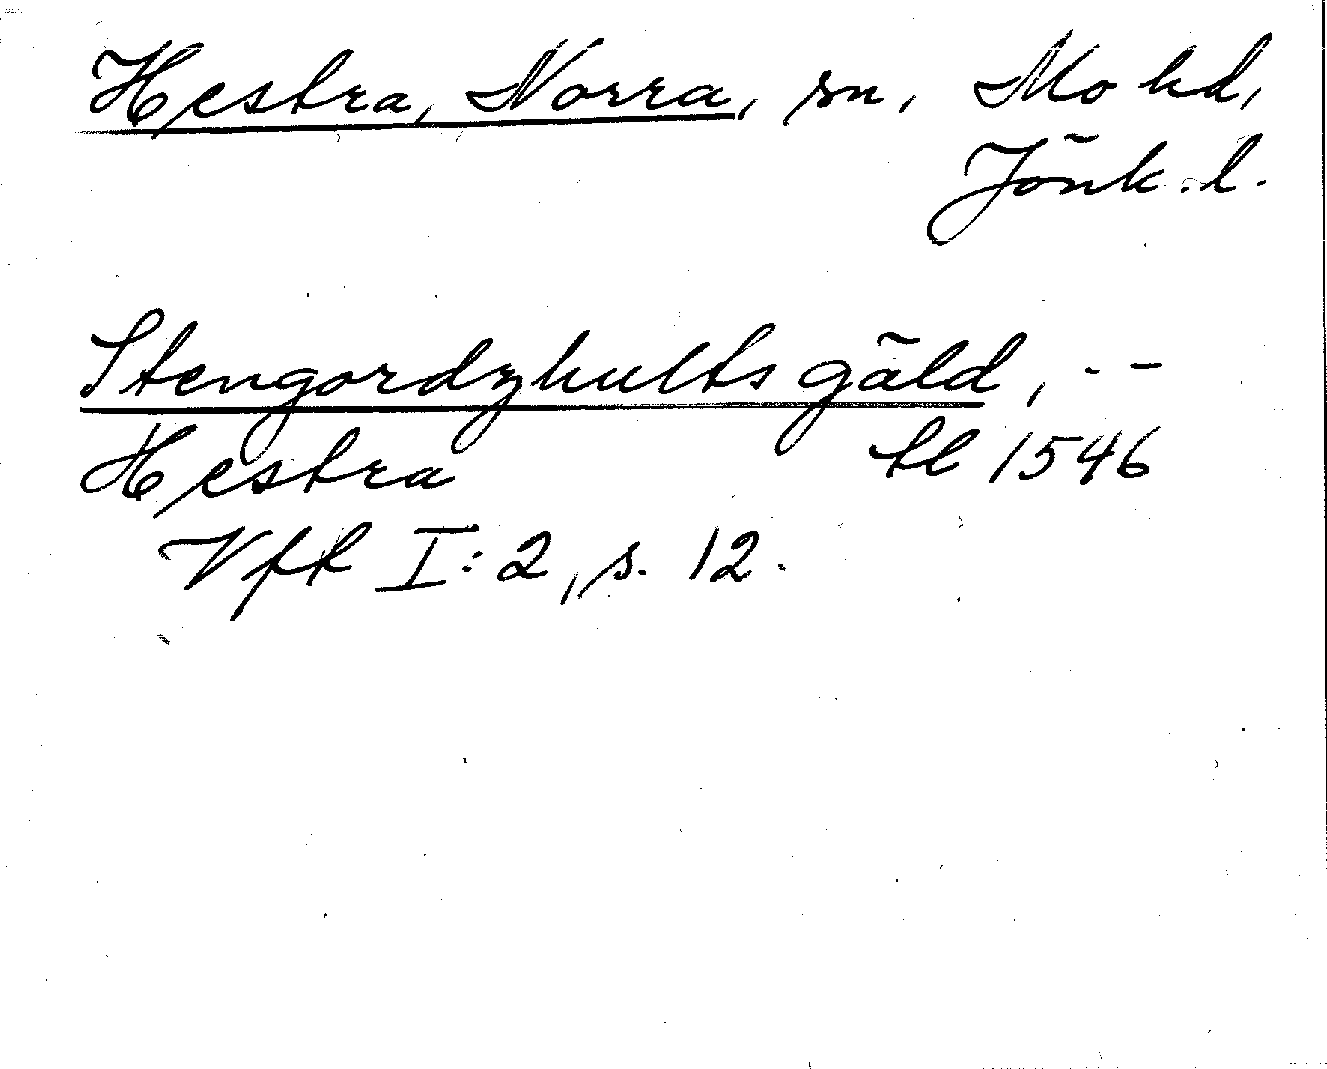 Hestra, Norra, sn, Mo hd,
Jönk. l.
Stengordzhults gäld, --
Hestra tl 1546
Vfk I:2, s. 12.